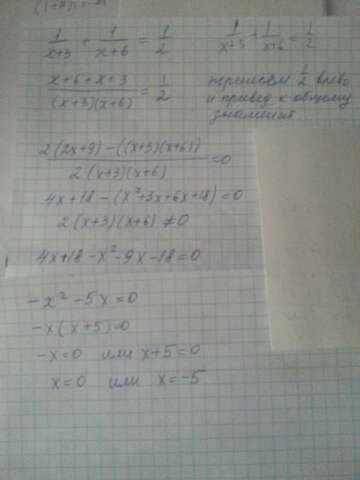 1/(x+3) + 1/(x+6) = 1/2
1/(x+3) + 1/(x+6) = 1/2
(x+6+x+3)/((x+3)(x+6)) = 1/2
перенесем 1/2 влево
и привед к общему
знаменат
(2(2x+9) - ((x+3)(x+6)))/(2(x+3)(x+6)) = 0
4x+18 - (x²+3x+6x+18) = 0
2(x+3)(x+6) ≠ 0
4x+18 - x² - 9x - 18 = 0
-x² - 5x = 0
-x(x+5) = 0
-x = 0 или x+5 = 0
x = 0 или x = -5